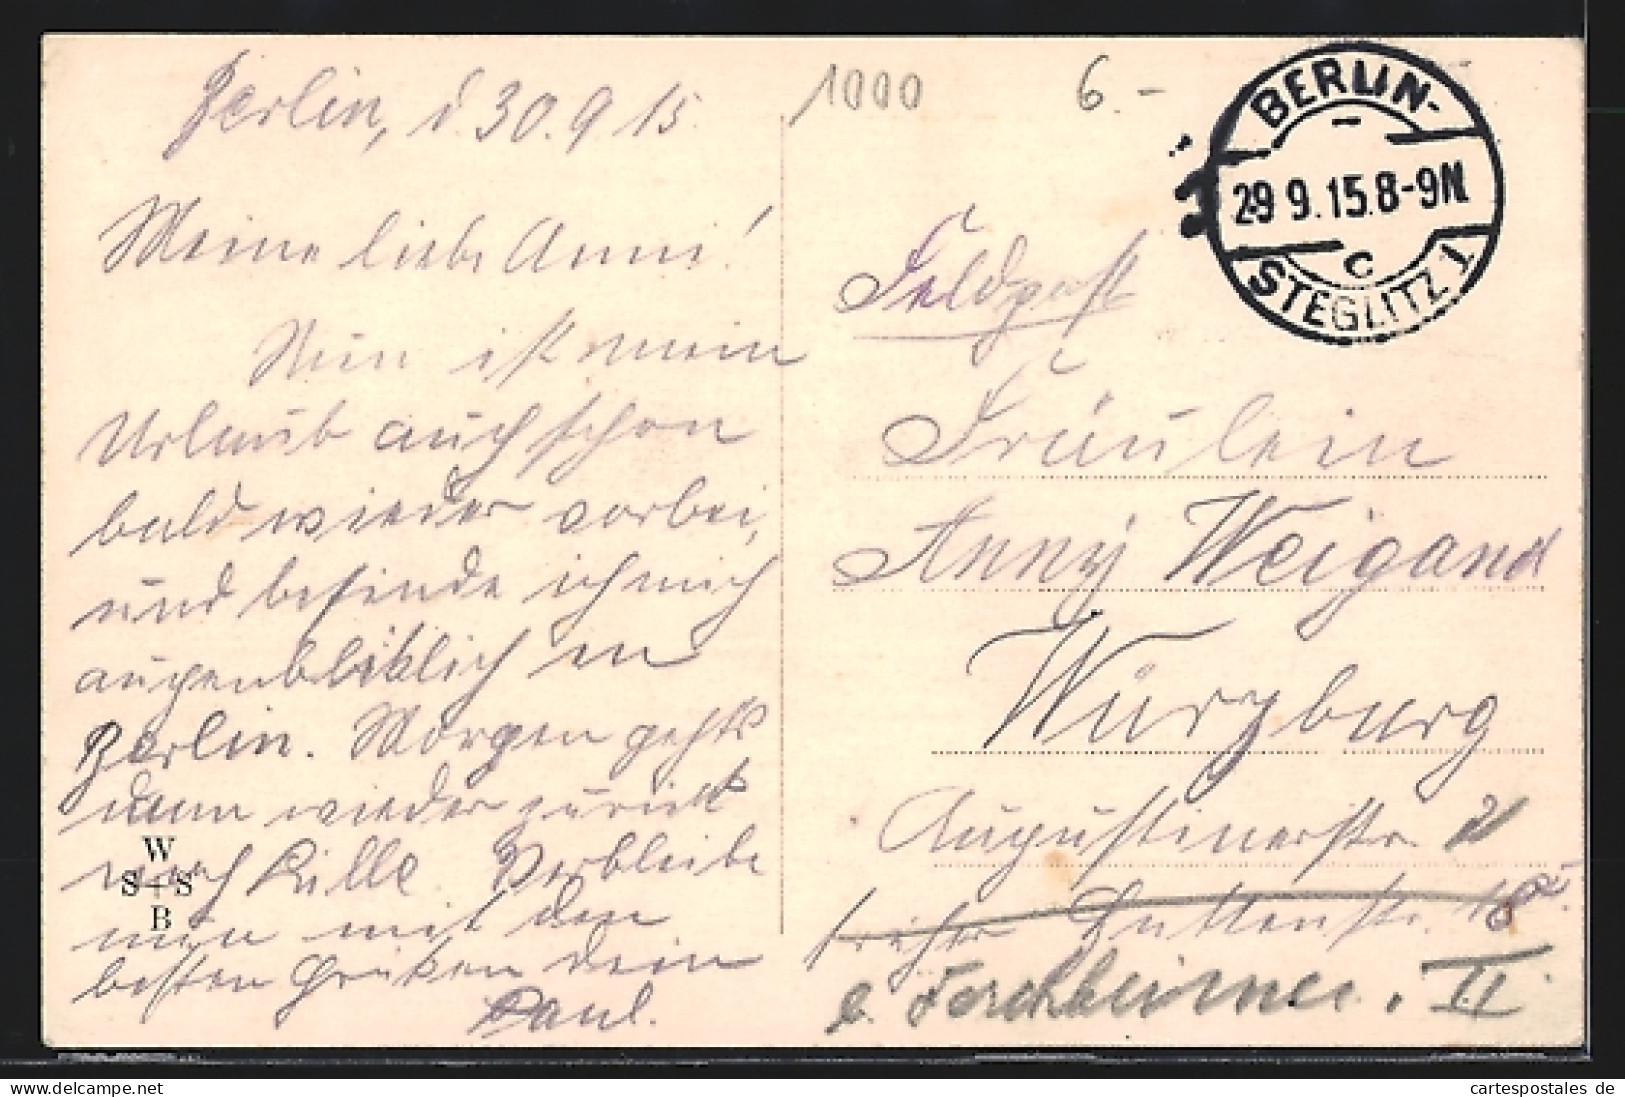 Berlin, d. 30.9.15.
Meine liebe Anni!
Nun ist mein
Urlaub auch schon
bald wieder vorbei,
und befinde ich mich
augenblicklich in
Berlin. Morgen geht's
dann wieder zurück
nach Lille. Verbleibe
nun mit den
besten Grüßen dein
Paul.
W
S+S
B
1000
6.-
BERLIN-
29 9.15.8-9N.
c
STEGLITZ 1
Feldpost
Fräulein
Anny Weigand
Würzburg
Augustinerstr. 2
früher
II.
cartespostales.de